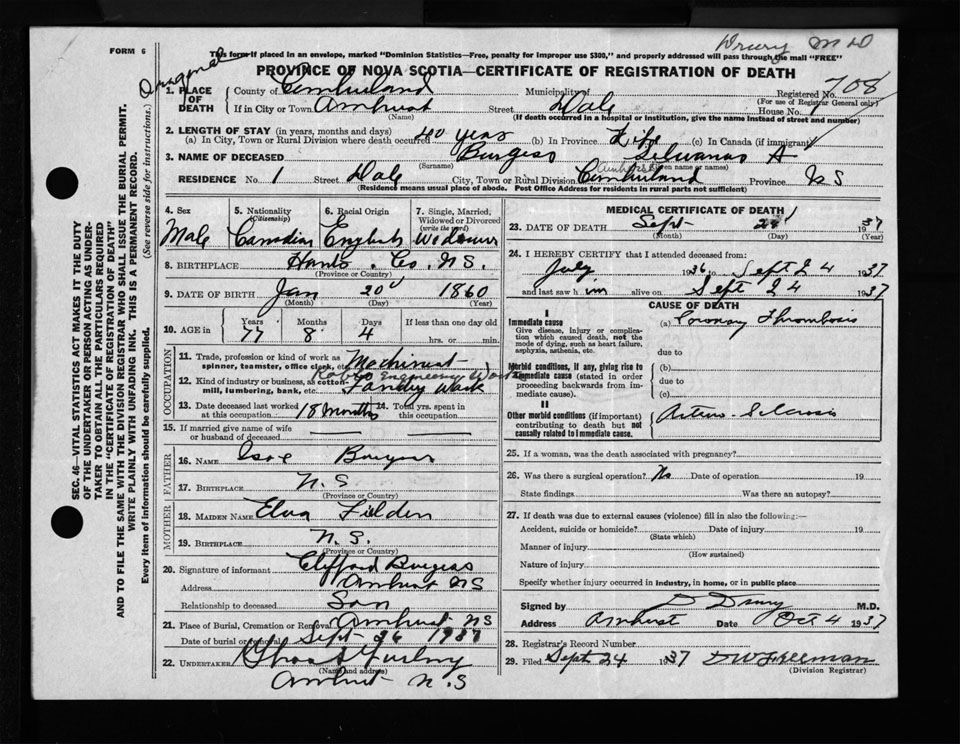 FORM 6
Drury M D
This form if placed in an envelope, marked "Dominion Statistics—Free, penalty for improper use $300," and properly addressed will pass through the mail "FREE"
Original
PROVINCE OF NOVA SCOTIA—CERTIFICATE OF REGISTRATION OF DEATH
708
1. PLACE OF DEATH County of Cumberland Municipality of Registered No.
(For use of Registrar General only)
If in City or Town Amherst Street Dale House No. 1
(Name) (If death occurred in a hospital or institution, give the name instead of street and number)
2. LENGTH OF STAY (in years, months and days)
(a) In City, Town or Rural Division where death occurred 40 years (b) In Province Life (c) In Canada (if immigrant)
3. NAME OF DECEASED Burgess Silvanas A
(Surname) (Given name or names)
RESIDENCE No. 1 Street Dale City, Town or Rural Division Amherst Cumberland Province NS
(Residence means usual place of abode. Post Office Address for residents in rural parts not sufficient)
4. Sex 5. Nationality (Citizenship) 6. Racial Origin 7. Single, Married, Widowed or Divorced (write the word)
Male Canadian English Widower
8. BIRTHPLACE Hants. Co. N.S.
(Province or Country)
9. DATE OF BIRTH Jan 20 1860
(Month) (Day) (Year)
10. AGE in Years Months Days If less than one day old
77 8 4 hrs. or min.
OCCUPATION
11. Trade, profession or kind of work as spinner, teamster, office clerk, etc. Machinist
12. Kind of industry or business, as cotton mill, lumbering, bank, etc. Robb Engineering Works
13. Date deceased last worked at this occupation 18 months 14. Total yrs. spent in this occupation
15. If married give name of wife or husband of deceased
FATHER
16. NAME Burgess
17. BIRTHPLACE N.S
(Province or Country)
MOTHER
18. MAIDEN NAME Elva Fielden
19. BIRTHPLACE N.S.
(Province or Country)
20. Signature of informant Clifford Burgess
Address Amherst NS
Relationship to deceased Son
21. Place of Burial, Cremation or Removal Amherst NS
Date of burial or removal Sept 26 1937
22. UNDERTAKER
(Name and address)
Amherst N.S
MEDICAL CERTIFICATE OF DEATH
23. DATE OF DEATH Sept 24 1937
(Month) (Day) (Year)
24. I HEREBY CERTIFY that I attended deceased from:
July 1936 to Sept 24 1937
and last saw h im alive on Sept 24 1937
CAUSE OF DEATH
I
Immediate cause (a) Coronary Thrombosis
Give disease, injury or complication which caused death, not the mode of dying, such as heart failure, asphyxia, asthenia, etc.
due to
Morbid conditions, if any, giving rise to immediate cause (stated in order proceeding backwards from immediate cause).
(b)
due to
(c)
II
Other morbid conditions (if important) contributing to death but not causally related to immediate cause.
25. If a woman, was the death associated with pregnancy?
26. Was there a surgical operation? No Date of operation 19
State findings Was there an autopsy?
27. If death was due to external causes (violence) fill in also the following:—
Accident, suicide or homicide? Date of injury 19
(State which)
Manner of injury
(How sustained)
Nature of injury
Specify whether injury occurred in industry, in home, or in public place
Signed by D Drury M.D.
Address Amherst Date Oct 4 1937
28. Registrar's Record Number
29. Filed Sept 24 1937 D W Freeman
(Division Registrar)
SEC. 46—VITAL STATISTICS ACT MAKES IT THE DUTY
OF THE UNDERTAKER OR PERSON ACTING AS UNDER-
TAKER TO OBTAIN ALL THE PARTICULARS REQUIRED
IN THE "CERTIFICATE OF REGISTRATION OF DEATH"
AND TO FILE THE SAME WITH THE DIVISION REGISTRAR WHO SHALL ISSUE THE BURIAL PERMIT.
WRITE PLAINLY WITH UNFADING INK. THIS IS A PERMANENT RECORD.
Every item of information should be carefully supplied. (See reverse side for instructions.)